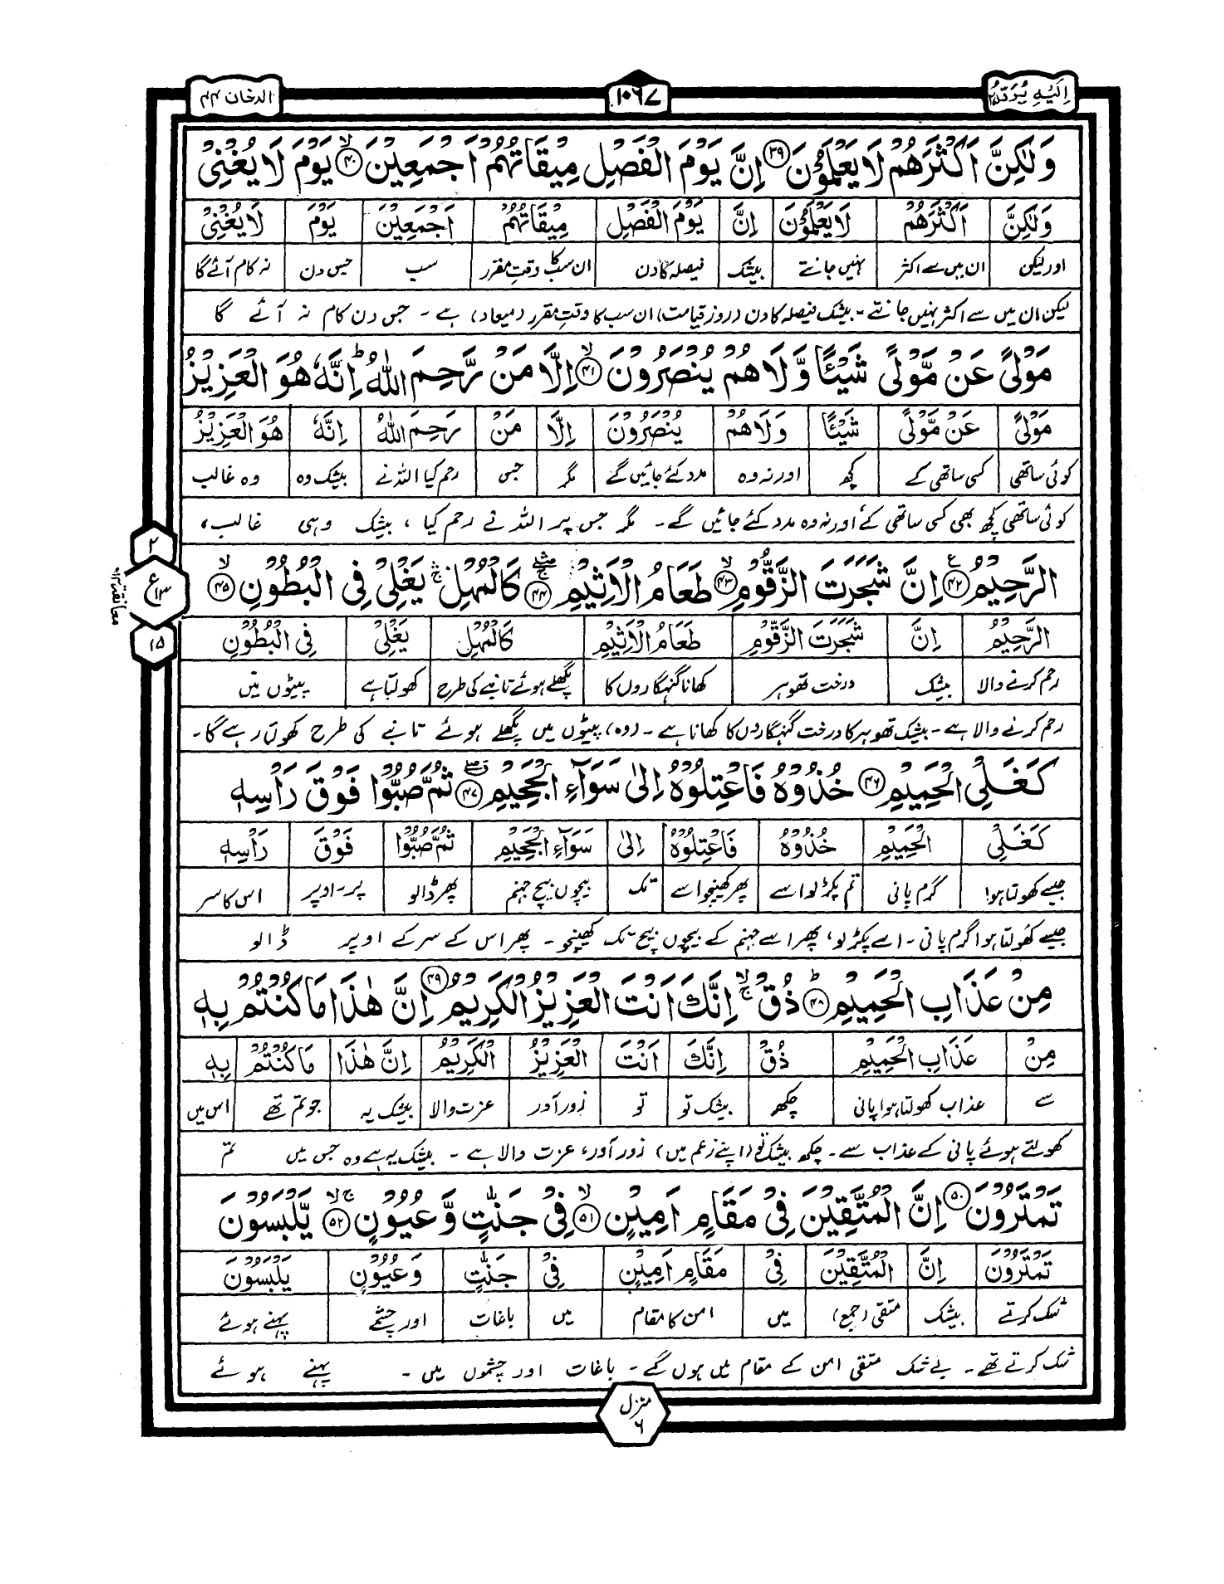 اِلَیْهِ یُرَدُّ ۲۵
۱۰۶۷
الدخان ۴۴
وَلٰكِنَّ اَكْثَرَهُمْ لَا يَعْلَمُوْنَ ﴿۳۹﴾ اِنَّ يَوْمَ الْفَصْلِ مِيْقَاتُهُمْ اَجْمَعِيْنَ ﴿۴۰﴾ يَوْمَ لَا يُغْنِيْ
وَلٰكِنَّ اَكْثَرَهُمْ لَا يَعْلَمُوْنَ اِنَّ يَوْمَ الْفَصْلِ مِيْقَاتُهُمْ اَجْمَعِيْنَ يَوْمَ لَا يُغْنِيْ
اور لیکن ان میں سے اکثر نہیں جانتے بیشک فیصلہ کا دن ان سب کا وقتِ مقرر سب جس دن نہ کام آئے گا
لیکن ان میں سے اکثر نہیں جانتے۔ بیشک فیصلہ کا دن (روز قیامت) ان سب کا وقتِ مقرر (میعاد) ہے۔ جس دن کام نہ آئے گا
مَوْلًى عَنْ مَّوْلًى شَيْـًٔا وَّلَا هُمْ يُنْصَرُوْنَ ﴿۴۱﴾ اِلَّا مَنْ رَّحِمَ اللّٰهُ ؕ اِنَّهٗ هُوَ الْعَزِيْزُ
مَوْلًى عَنْ مَّوْلًى شَيْـًٔا وَلَا هُمْ يُنْصَرُوْنَ اِلَّا مَنْ رَحِمَ اللّٰهُ اِنَّهٗ هُوَ الْعَزِيْزُ
کوئی ساتھی کسی ساتھی کے کچھ اور نہ وہ مدد کئے جائیں گے مگر جس رحم کیا اللہ نے بیشک وہ وہ غالب
کوئی ساتھی کچھ بھی کسی ساتھی کے، اور نہ وہ مدد کئے جائیں گے۔ مگر جس پر اللہ نے رحم کیا، بیشک وہی غالب،
۲
ع ۱۳
۱۵
الرَّحِيْمُ ﴿۴۲﴾ اِنَّ شَجَرَتَ الزَّقُّوْمِ ﴿۴۳﴾ طَعَامُ الْاَثِيْمِ ﴿۴۴﴾ كَالْمُهْلِ ۛ يَغْلِيْ فِى الْبُطُوْنِ ﴿۴۵﴾
الرَّحِيْمُ اِنَّ شَجَرَتَ الزَّقُّوْمِ طَعَامُ الْاَثِيْمِ كَالْمُهْلِ يَغْلِيْ فِى الْبُطُوْنِ
رحم کرنے والا بیشک درخت تھوہر کھانا گنہگاروں کا پگھلے ہوئے تانبے کی طرح کھولتا ہے پیٹوں میں
رحم کرنے والا ہے۔ بیشک تھوہر کا درخت گنہگاروں کا کھانا ہے۔ (وہ) پیٹوں میں پگھلے ہوئے تانبے کی طرح کھولتا رہے گا۔
كَغَلْيِ الْحَمِيْمِ ﴿۴۶﴾ خُذُوْهُ فَاعْتِلُوْهُ اِلٰى سَوَآءِ الْجَحِيْمِ ﴿۴۷﴾ ثُمَّ صُبُّوْا فَوْقَ رَاْسِهٖ
كَغَلْيِ الْحَمِيْمِ خُذُوْهُ فَاعْتِلُوْهُ اِلٰى سَوَآءِ الْجَحِيْمِ ثُمَّ صُبُّوْا فَوْقَ رَاْسِهٖ
جیسے کھولتا ہوا گرم پانی تم پکڑ لو اسے پھر کھینچو اسے تک بیچوں بیچ جہنم پھر ڈالو پر - اوپر اس کا سر
جیسے کھولتا ہوا گرم پانی۔ اسے پکڑ لو، پھر اسے جہنم کے بیچوں بیچ تک کھینچو۔ پھر اس کے سر کے اوپر ڈالو
مِنْ عَذَابِ الْحَمِيْمِ ﴿۴۸﴾ ذُقْ ۚ اِنَّكَ اَنْتَ الْعَزِيْزُ الْكَرِيْمُ ﴿۴۹﴾ اِنَّ هٰذَا مَا كُنْتُمْ بِهٖ
مِنْ عَذَابِ الْحَمِيْمِ ذُقْ اِنَّكَ اَنْتَ الْعَزِيْزُ الْكَرِيْمُ اِنَّ هٰذَا مَا كُنْتُمْ بِهٖ
سے عذاب کھولتا ہوا پانی چکھ بیشک تو تو زور آور عزت والا بیشک یہ جو تم تھے اس میں
کھولتے ہوئے پانی کے عذاب سے۔ چکھ بیشک تو (اپنے زعم میں) زور آور، عزت والا ہے۔ بیشک یہ ہے وہ جس میں تم
تَمْتَرُوْنَ ﴿۵۰﴾ اِنَّ الْمُتَّقِيْنَ فِيْ مَقَامٍ اَمِيْنٍ ﴿۵۱﴾ فِيْ جَنّٰتٍ وَّعُيُوْنٍ ﴿۵۲﴾ يَّلْبَسُوْنَ
تَمْتَرُوْنَ اِنَّ الْمُتَّقِيْنَ فِيْ مَقَامٍ اَمِيْنٍ فِيْ جَنّٰتٍ وَعُيُوْنٍ يَلْبَسُوْنَ
شک کرتے بیشک متقی (جمع) میں امن کا مقام میں باغات اور چشمے پہنے ہوئے
شک کرتے تھے۔ بے شک متقی امن کے مقام میں ہوں گے۔ باغات اور چشموں میں۔ پہنے ہوئے
منزل ۶